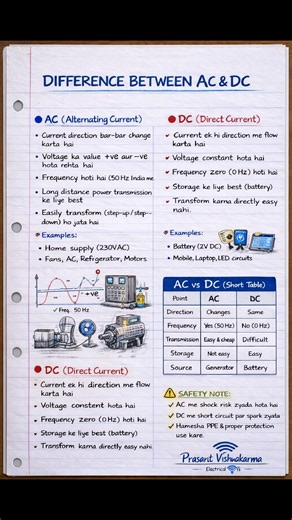 DIFFERENCE BETWEEN AC & DC
AC (Alternating Current)
Current direction bar-bar change
karta hai
Voltage ka value +ve aur -ve
hota rehta hai
Frequency hoti hai (50 Hz India me
Long distance power transmission
ke liye best
Easily transform (step-up/step-
down) ho jata hai
Examples:
Home supply (230VAC)
Fans, AC, Refrgerator, Motors
+ve
✓ Freq. 50 Hz
DC (Direct Current)
Current ek hi direction me flow
karta hai
Voltage constant hota hai
Frequency zero (0 Hz) hoti hai
Storage ke liye best (battery)
Transform karna directly easy nahi.
DC (Direct Current)
Current ek hi direction me flow
karta hai
Voltage constant hota hai
Frequency zero (0 Hz) hoti hai
Storage ke liye best (battery)
Transform karna directly easy
nahi.
Examples:
Battery (12V DC)
Mobile, Laptop, LED circuits
AC vs DC (Short Table)
Point AC DC
Direction Changes Same
Frequency Yes (50 Hz) No (0 Hz)
Transmission Easy & cheap Difficult
Storage Not easy Easy
Source Generator Battery
SAFETY NOTE:
✓ AC me shock risk zyada hota hai
✓ DC me short circuit par spark zyada
✓ Hamesha PPE & proper protection
use kare.
Prasant Vishwakarma
Electrical